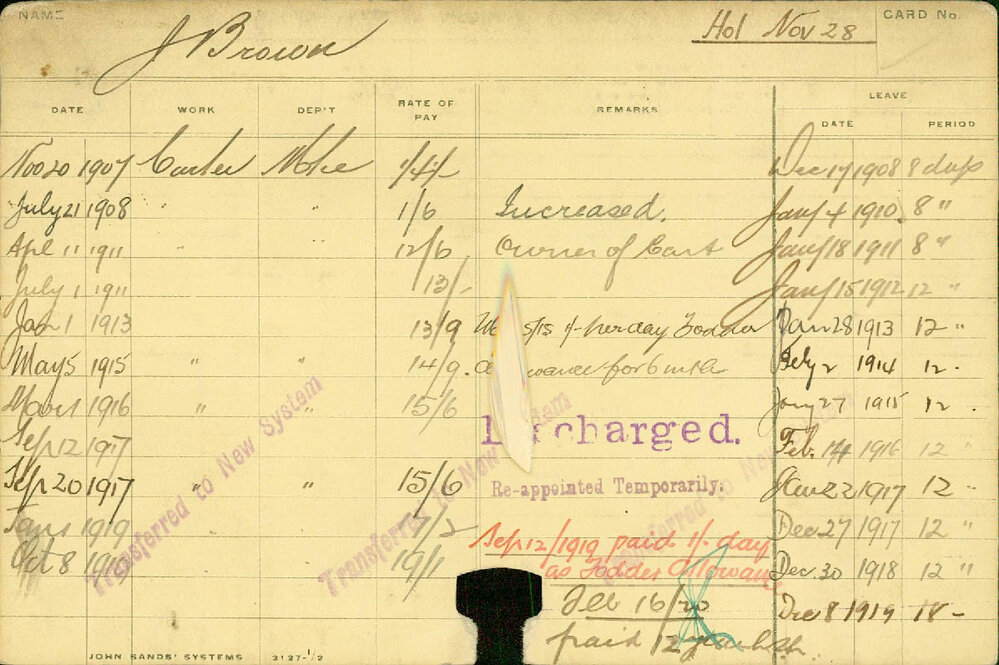 NAME J Brown Hol Nov 28 CARD No.
DATE WORK DEP'T RATE OF PAY REMARKS LEAVE
DATE PERIOD
Nov 20 1907 Carter Moke Dec 17 1908 8 days
July 21 1908 " " 1/6 Increased. Jany 4 1910 8 "
Apl 11 1911 " " 12/6 Owner of Cart Jany 18 1911 8 "
July 1 1911 13/- Jany 15 1912 12 "
Jan 1 1913 13/9 5/15 1/- per day Fodder Jan 28 1913 12 "
May 5 1915 " " 14/9. for 6 mths Feby 2 1914 12 .
1916 " " 15/6 Jany 27 1915 12 .
Sep 12 1917 Discharged. Feb. 14 1916 12 "
Sep 20 1917 " " 15/6 Re-appointed Temporarily. Jan 22 1917 12 "
1919 17/2 Sep 12/1919 paid 1/- day Dec 27 1917 12 "
Oct 8 1919 19/1 as Fodder Allowance Dec 30 1918 12 "
Feb 16/20 Dec 8 1919 18 -
paid 12
Transferred to New System
Transferred to New System
Transferred to New
JOHN SANDS' SYSTEMS 3127-1/2